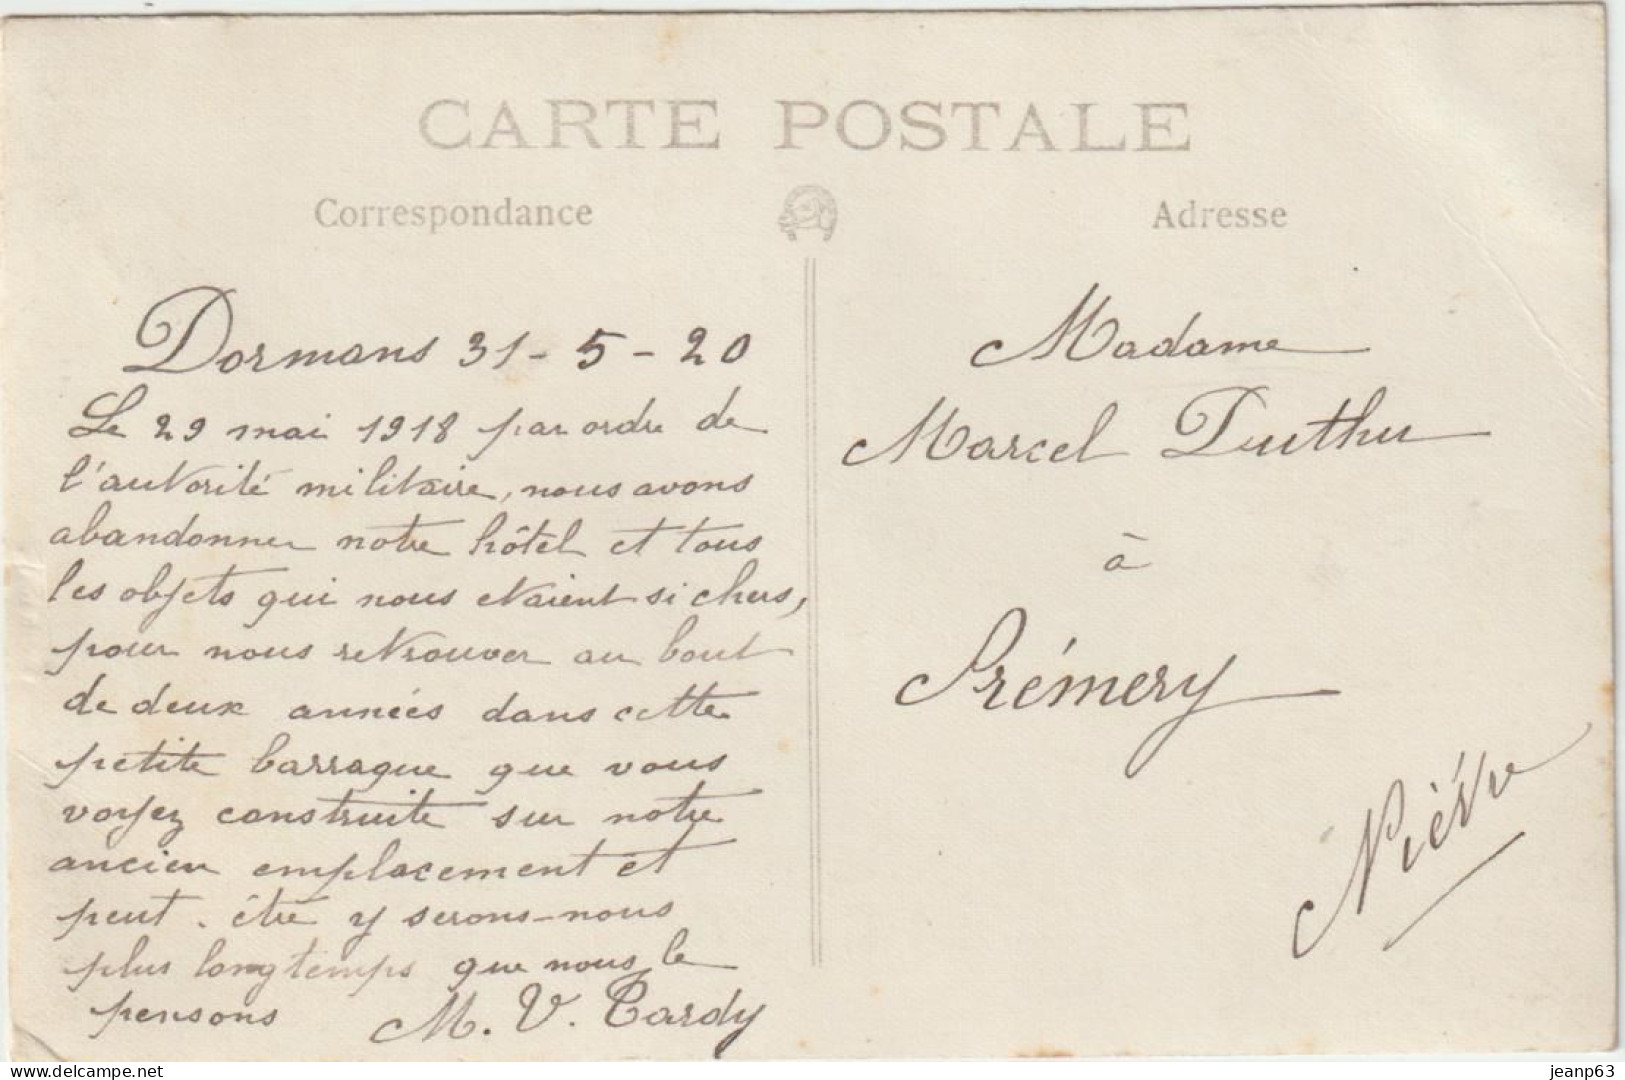 CARTE POSTALE
Correspondance
Adresse
Dormans 31-5-20
Le 29 mai 1918 par ordre de
l'autorité militaire, nous avons
abandonner notre hôtel et tous
les objets qui nous etaient si chers,
pour nous retrouver au bout
de deux années dans cette
petite barraque que vous
voyez construite sur notre
ancien emplacement et
peut-être y serons-nous
plus longtemps que nous le
pensons M. V. Tardy
Madame
Marcel Duthu
à
Prémery
Nièvre
delcampe.net
jeanp63